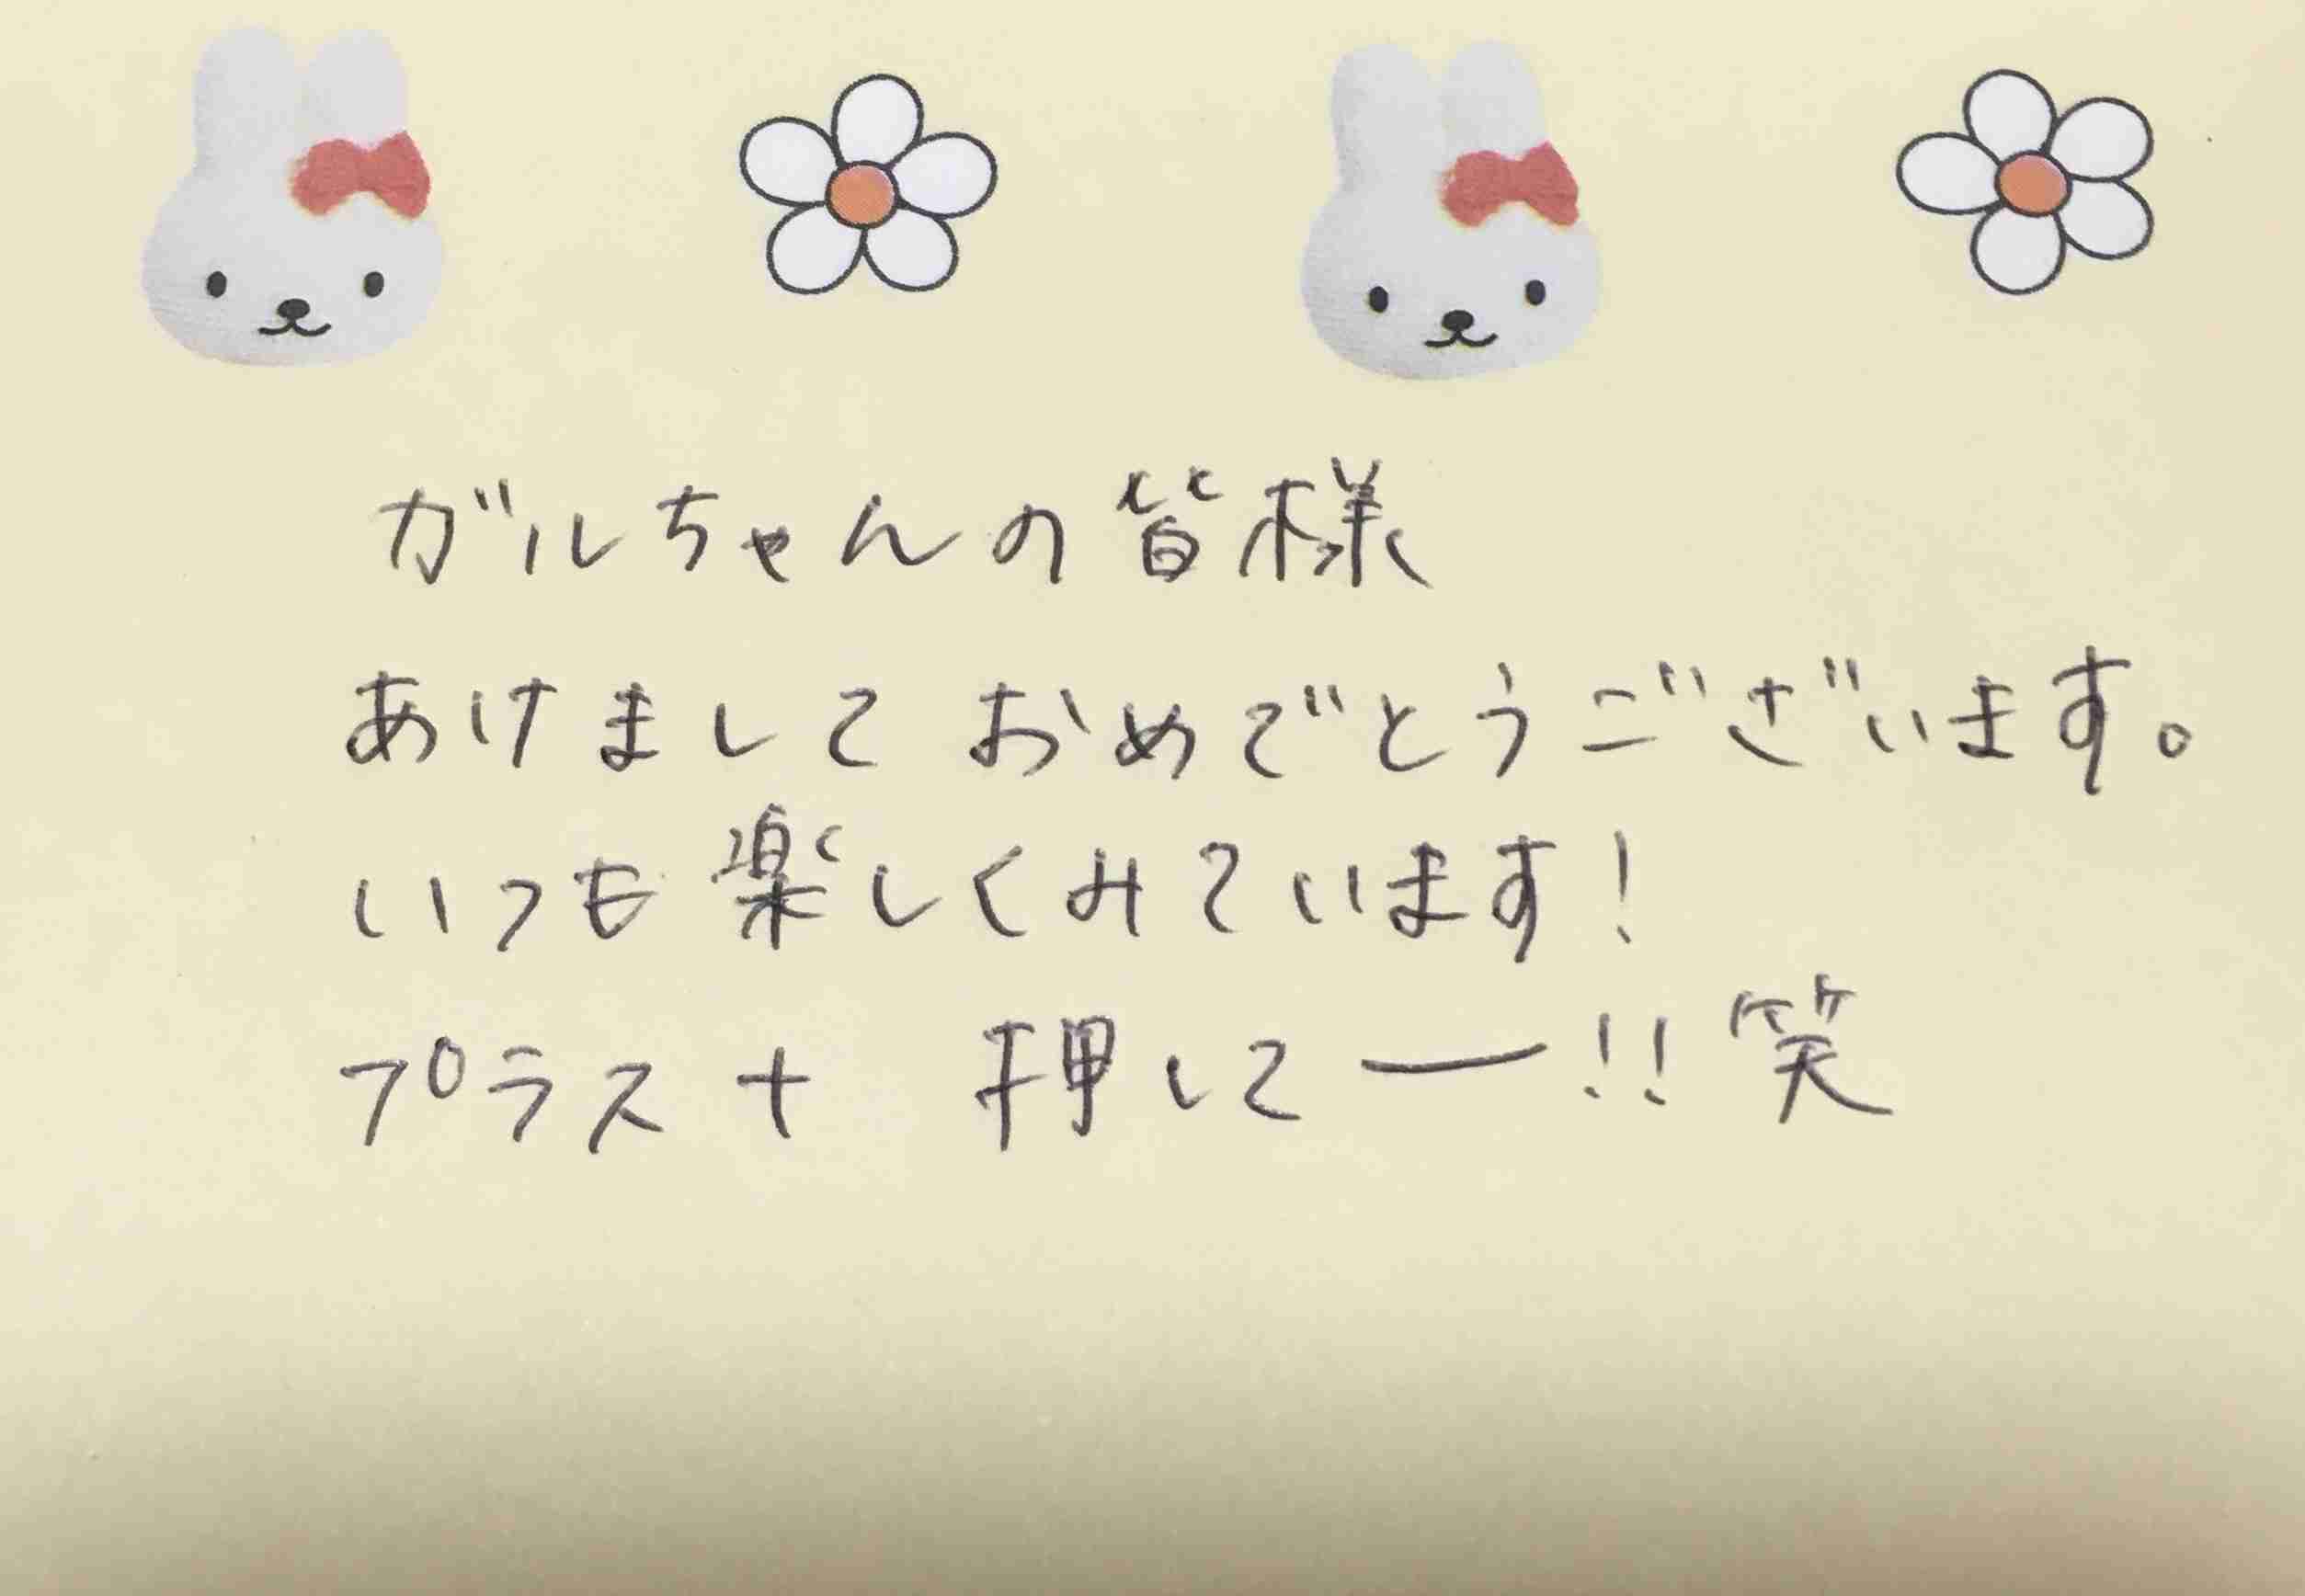 ガルちゃんの皆様
あけましておめでとうございます。
いつも楽しくみています!
プラス+ 押してー!!笑